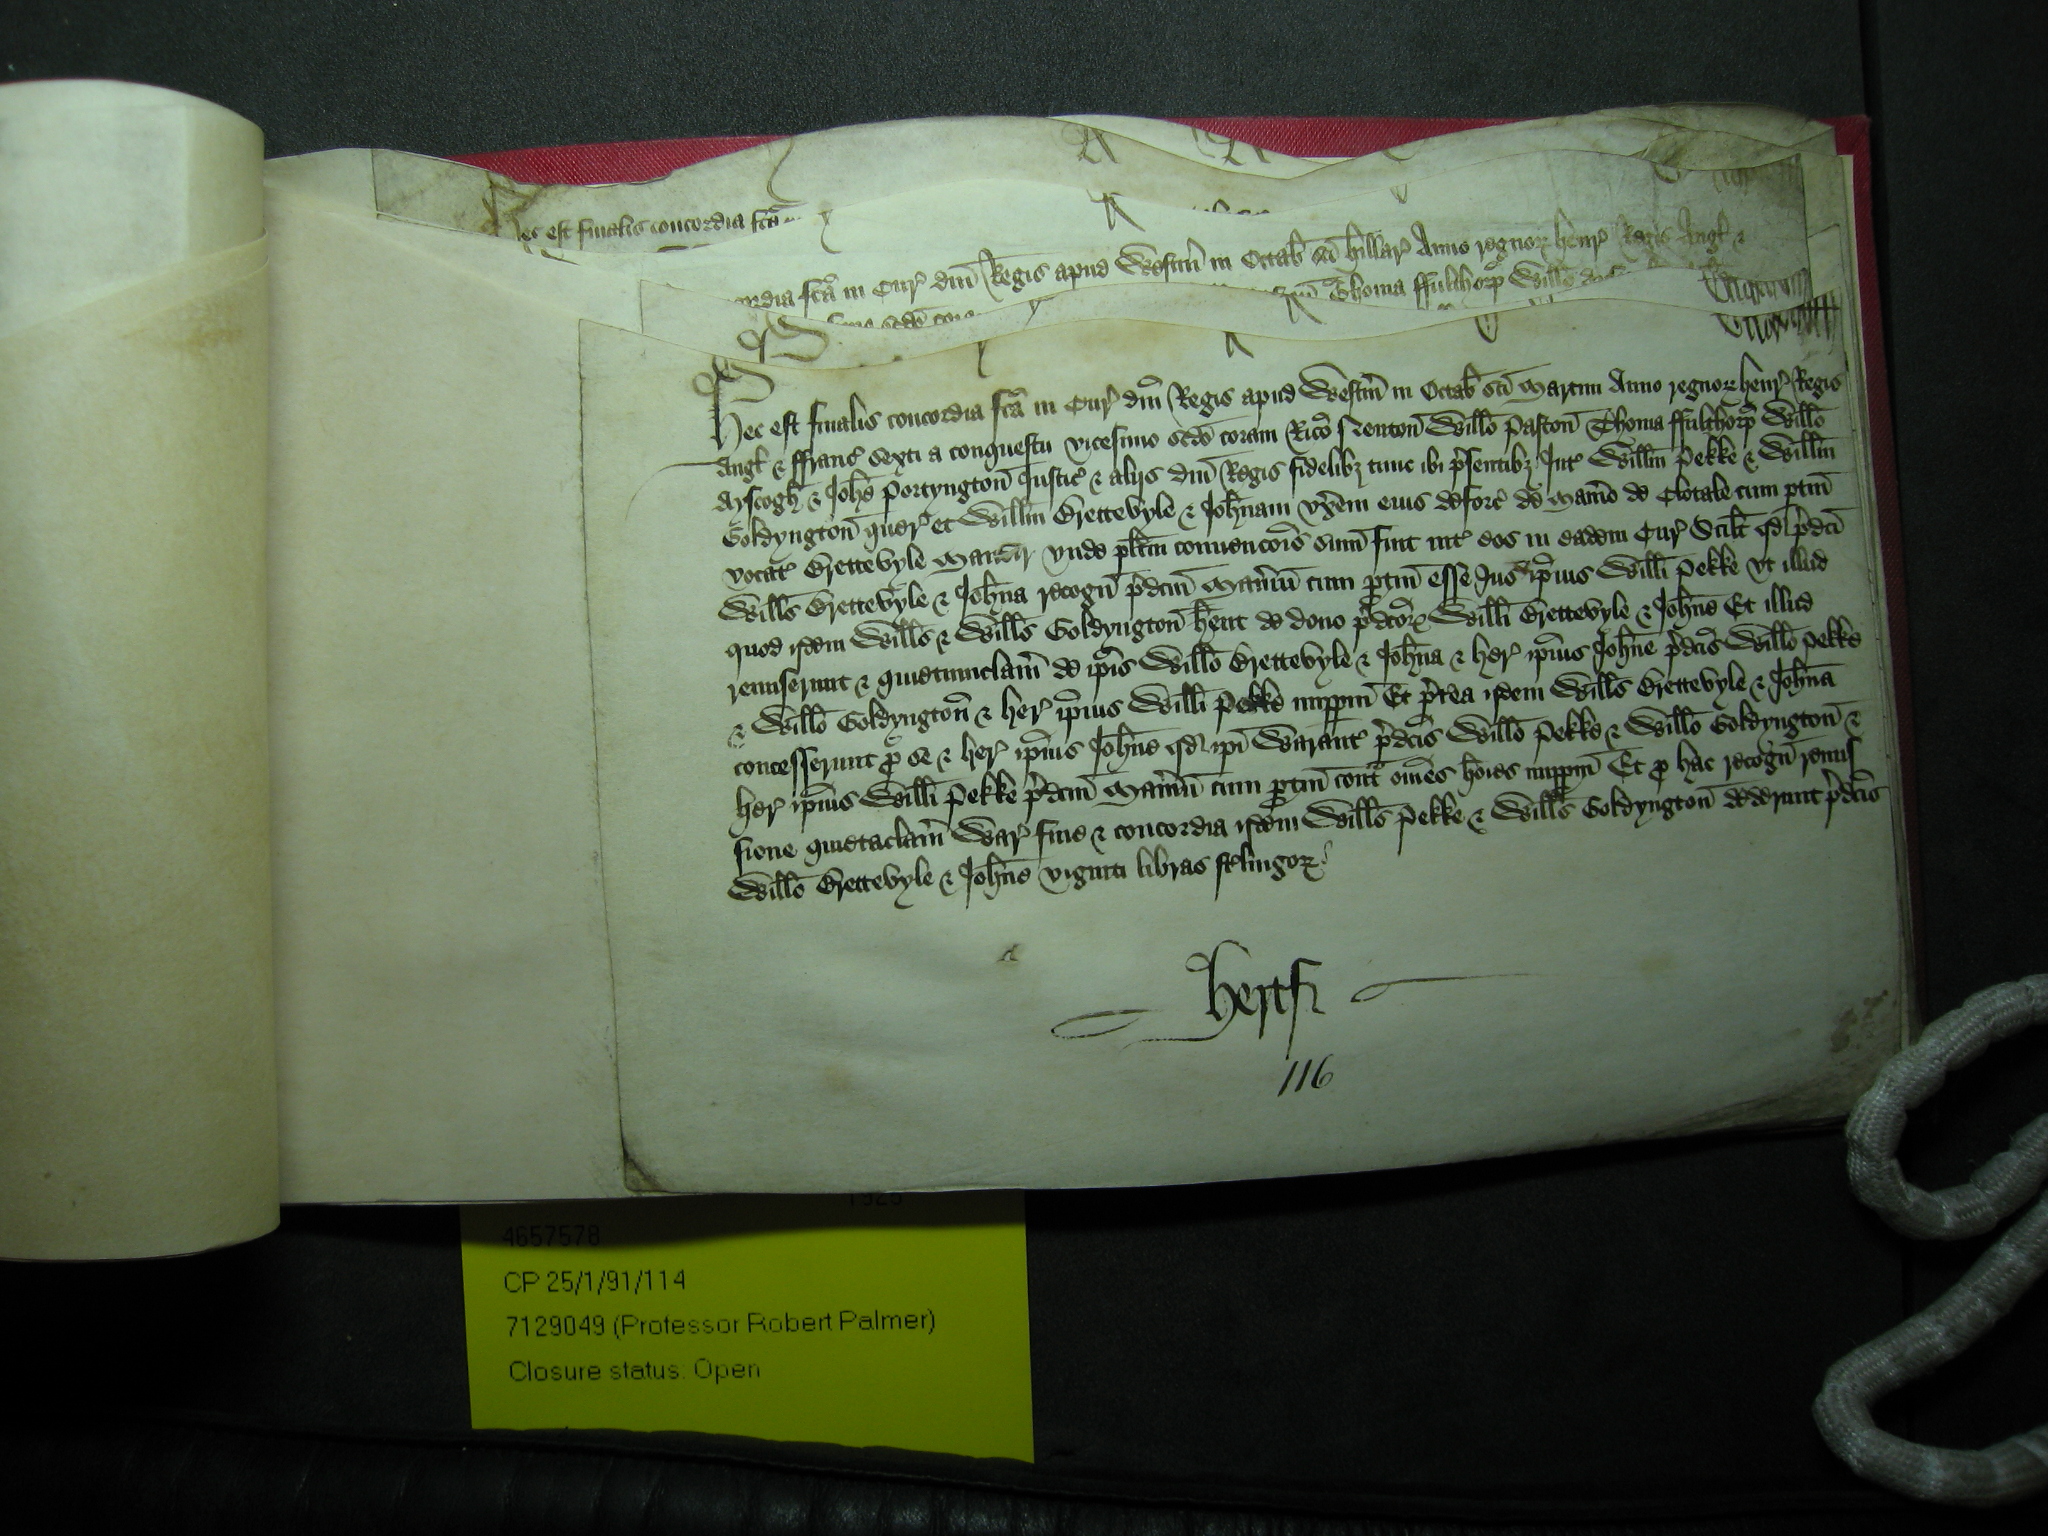 ec est finalis concordia fcā
ordia fcā in Cur dnī Regis apud Westm̄ in Octab sci hillar Anno regnor henr Regis Angl &
Thoma ffulthorp Willo
Hec est finalis concordia fcā in Cur dnī Regis apud Westm̄ in Octab sci Martini Anno regnor henr Regis
Angl & ffranc sexti a conquestu vicesimo scdo coram Rico Neuton Willo Paston Thoma ffulthorp Willo
Ayscogh & Johe Portyngton Justic & alijs dnī Regis fidelibz tunc ibi p̄sentibz Int Willm Pekke & Willm
Goldyngton quer et Willm Grettevyle & Johnam vxem eius deforc de Man̄io de Clotale cum ptin̄
vocat Grettevyle Maner vnde plitm convencois sum̄ fuit int eos in eadem Cur Scilt qd p̄dcī
Wills Grettevyle & Johna recogn p̄dcm̄ Man̄iu cum ptin̄ esse Jus ip̄ius Willi Pekke vt illud
quod ijdem Wills & Wills Goldyngton hent de dono p̄dcor Willi Grettevyle & Johne Et illud
remiserunt & quietumclam de ip̄is Willo Grettevyle & Johna & her ip̄ius Johne p̄dcis Willo Pekke
& Willo Goldyngton & her ip̄ius Willi Pekke inppm̄ Et p̄tea ijdem Wills Grettevyle & Johna
concesserunt p se & her ip̄ius Johne qd ip̄i Warant p̄dcis Willo Pekke & Willo Goldyngton &
her ip̄ius Willi Pekke p̄dcm̄ Man̄iu cum ptin̄ contra om̄es hoies inppm̄ Et p hac recogn remis
sione quietaclam War fine & concordia ijdem Wills Pekke & Wills Goldyngton dederunt p̄dcis
Willo Grettevyle & Johne viginti libras stlingor
hertf
116
1925
4657578
CP 25/1/91/114
7129049 (Professor Robert Palmer)
Closure status: Open